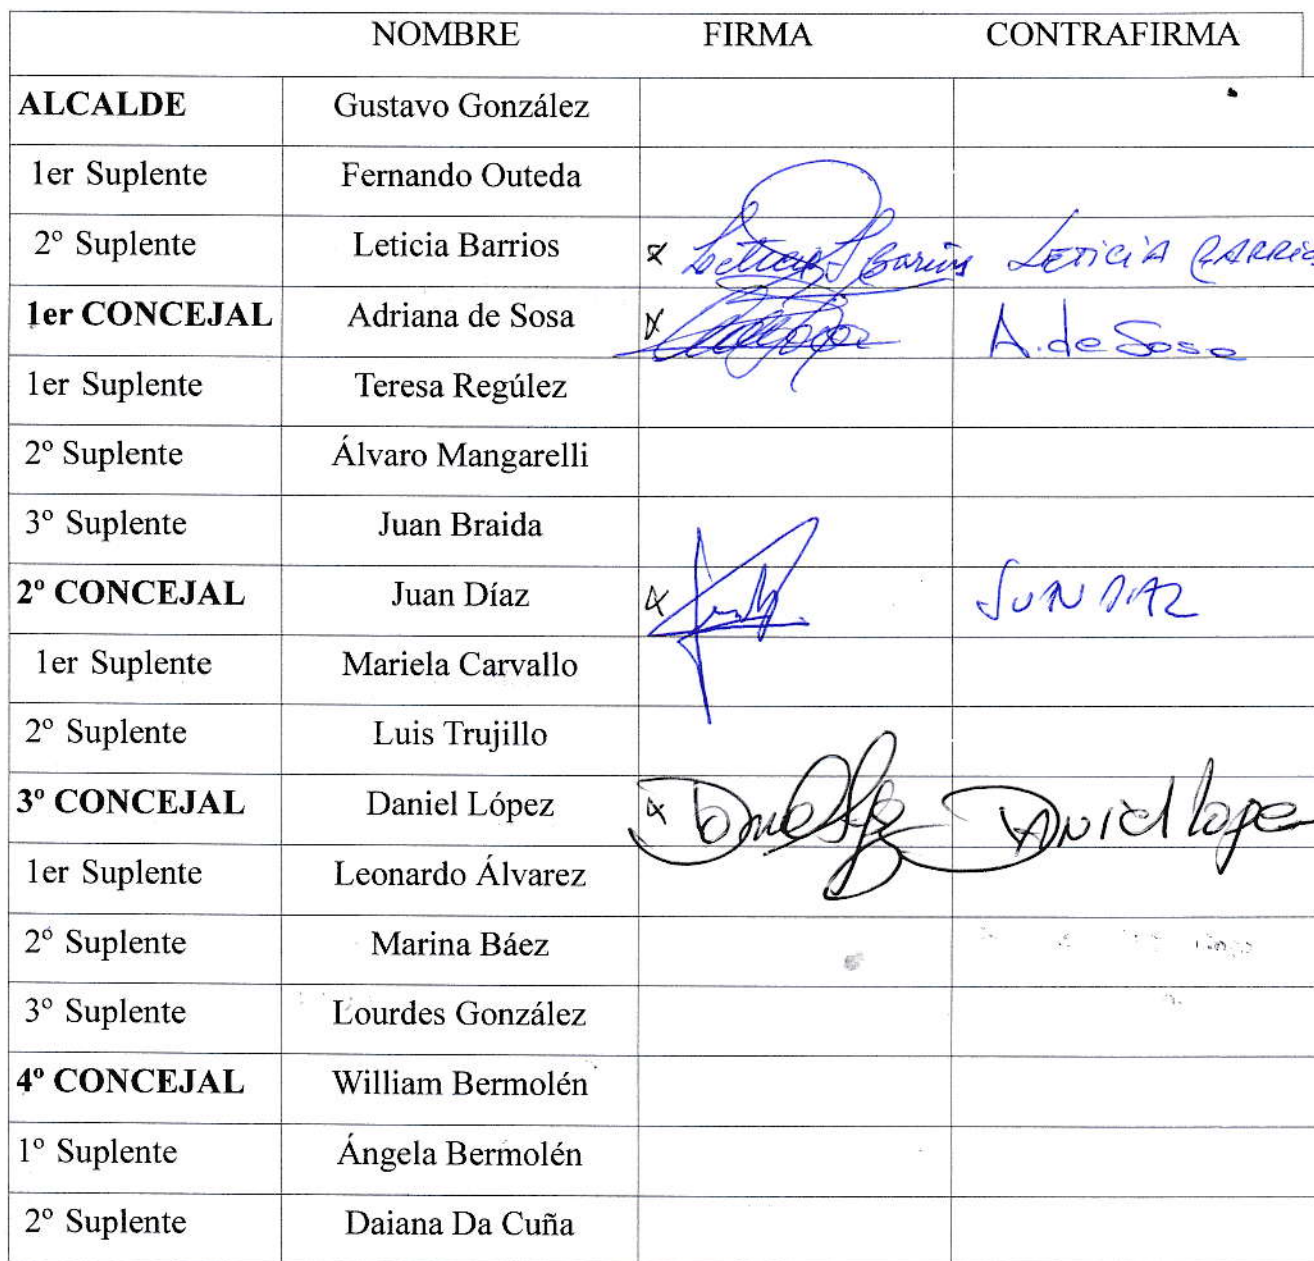 NOMBRE FIRMA CONTRAFIRMA
ALCALDE Gustavo González
1er Suplente Fernando Outeda
2º Suplente Leticia Barrios x Leticia Barrios LETICIA BARRIOS
1er CONCEJAL Adriana de Sosa x A. de Sosa
1er Suplente Teresa Regúlez
2º Suplente Álvaro Mangarelli
3º Suplente Juan Braida
2º CONCEJAL Juan Díaz x JUAN DIAZ
1er Suplente Mariela Carvallo
2º Suplente Luis Trujillo
3º CONCEJAL Daniel López x Daniel Lopez
1er Suplente Leonardo Álvarez
2º Suplente Marina Báez
3º Suplente Lourdes González
4º CONCEJAL William Bermolén
1º Suplente Ángela Bermolén
2º Suplente Daiana Da Cuña